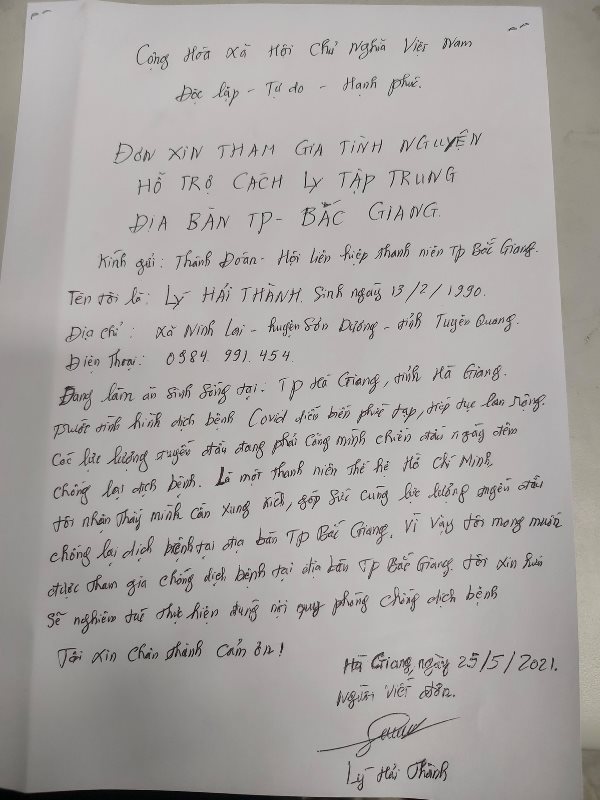 Cộng Hòa Xã Hội Chủ Nghĩa Việt Nam
Độc lập - Tự do - Hạnh phúc.
ĐƠN XIN THAM GIA TÌNH NGUYỆN
HỖ TRỢ CÁCH LY TẬP TRUNG
ĐỊA BÀN TP- BẮC GIANG.
Kính gửi: Thành Đoàn - Hội Liên hiệp thanh niên Tp Bắc Giang.
Tên tôi là: LÝ HẢI THÀNH. Sinh ngày 13/2/1990.
Địa chỉ: Xã Ninh Lai - huyện Sơn Dương - tỉnh Tuyên Quang.
Điện Thoại: 0984 991 454.
Đang làm ăn sinh sống tại: TP Hà Giang, tỉnh Hà Giang.
Trước tình hình dịch bệnh Covid diễn biến phức tạp, tiếp tục lan rộng.
Các lực lượng tuyến đầu đang phải Công mình chiến đấu ngày đêm
chống lại dịch bệnh. Là một thanh niên thế hệ Hồ Chí Minh,
tôi nhận thấy mình cần xung kích, góp sức cùng lực lượng tuyến đầu
chống lại dịch bệnh tại địa bàn TP Bắc Giang. Vì vậy tôi mong muốn
được tham gia chống dịch bệnh tại địa bàn TP Bắc Giang. Tôi xin hứa
Sẽ nghiêm túc thực hiện đúng nội quy phòng chống dịch bệnh
Tôi xin chân thành cảm ơn!
Hà Giang, ngày 25/5/2021.
Người viết đơn.
Lý Hải Thành